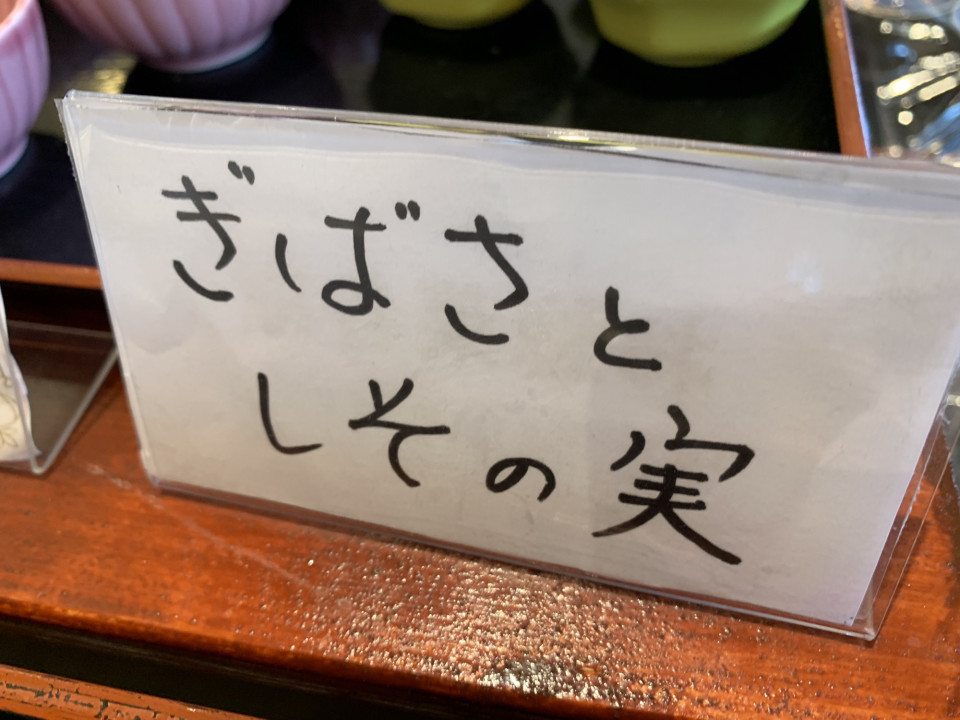 ぎばさと
しその実